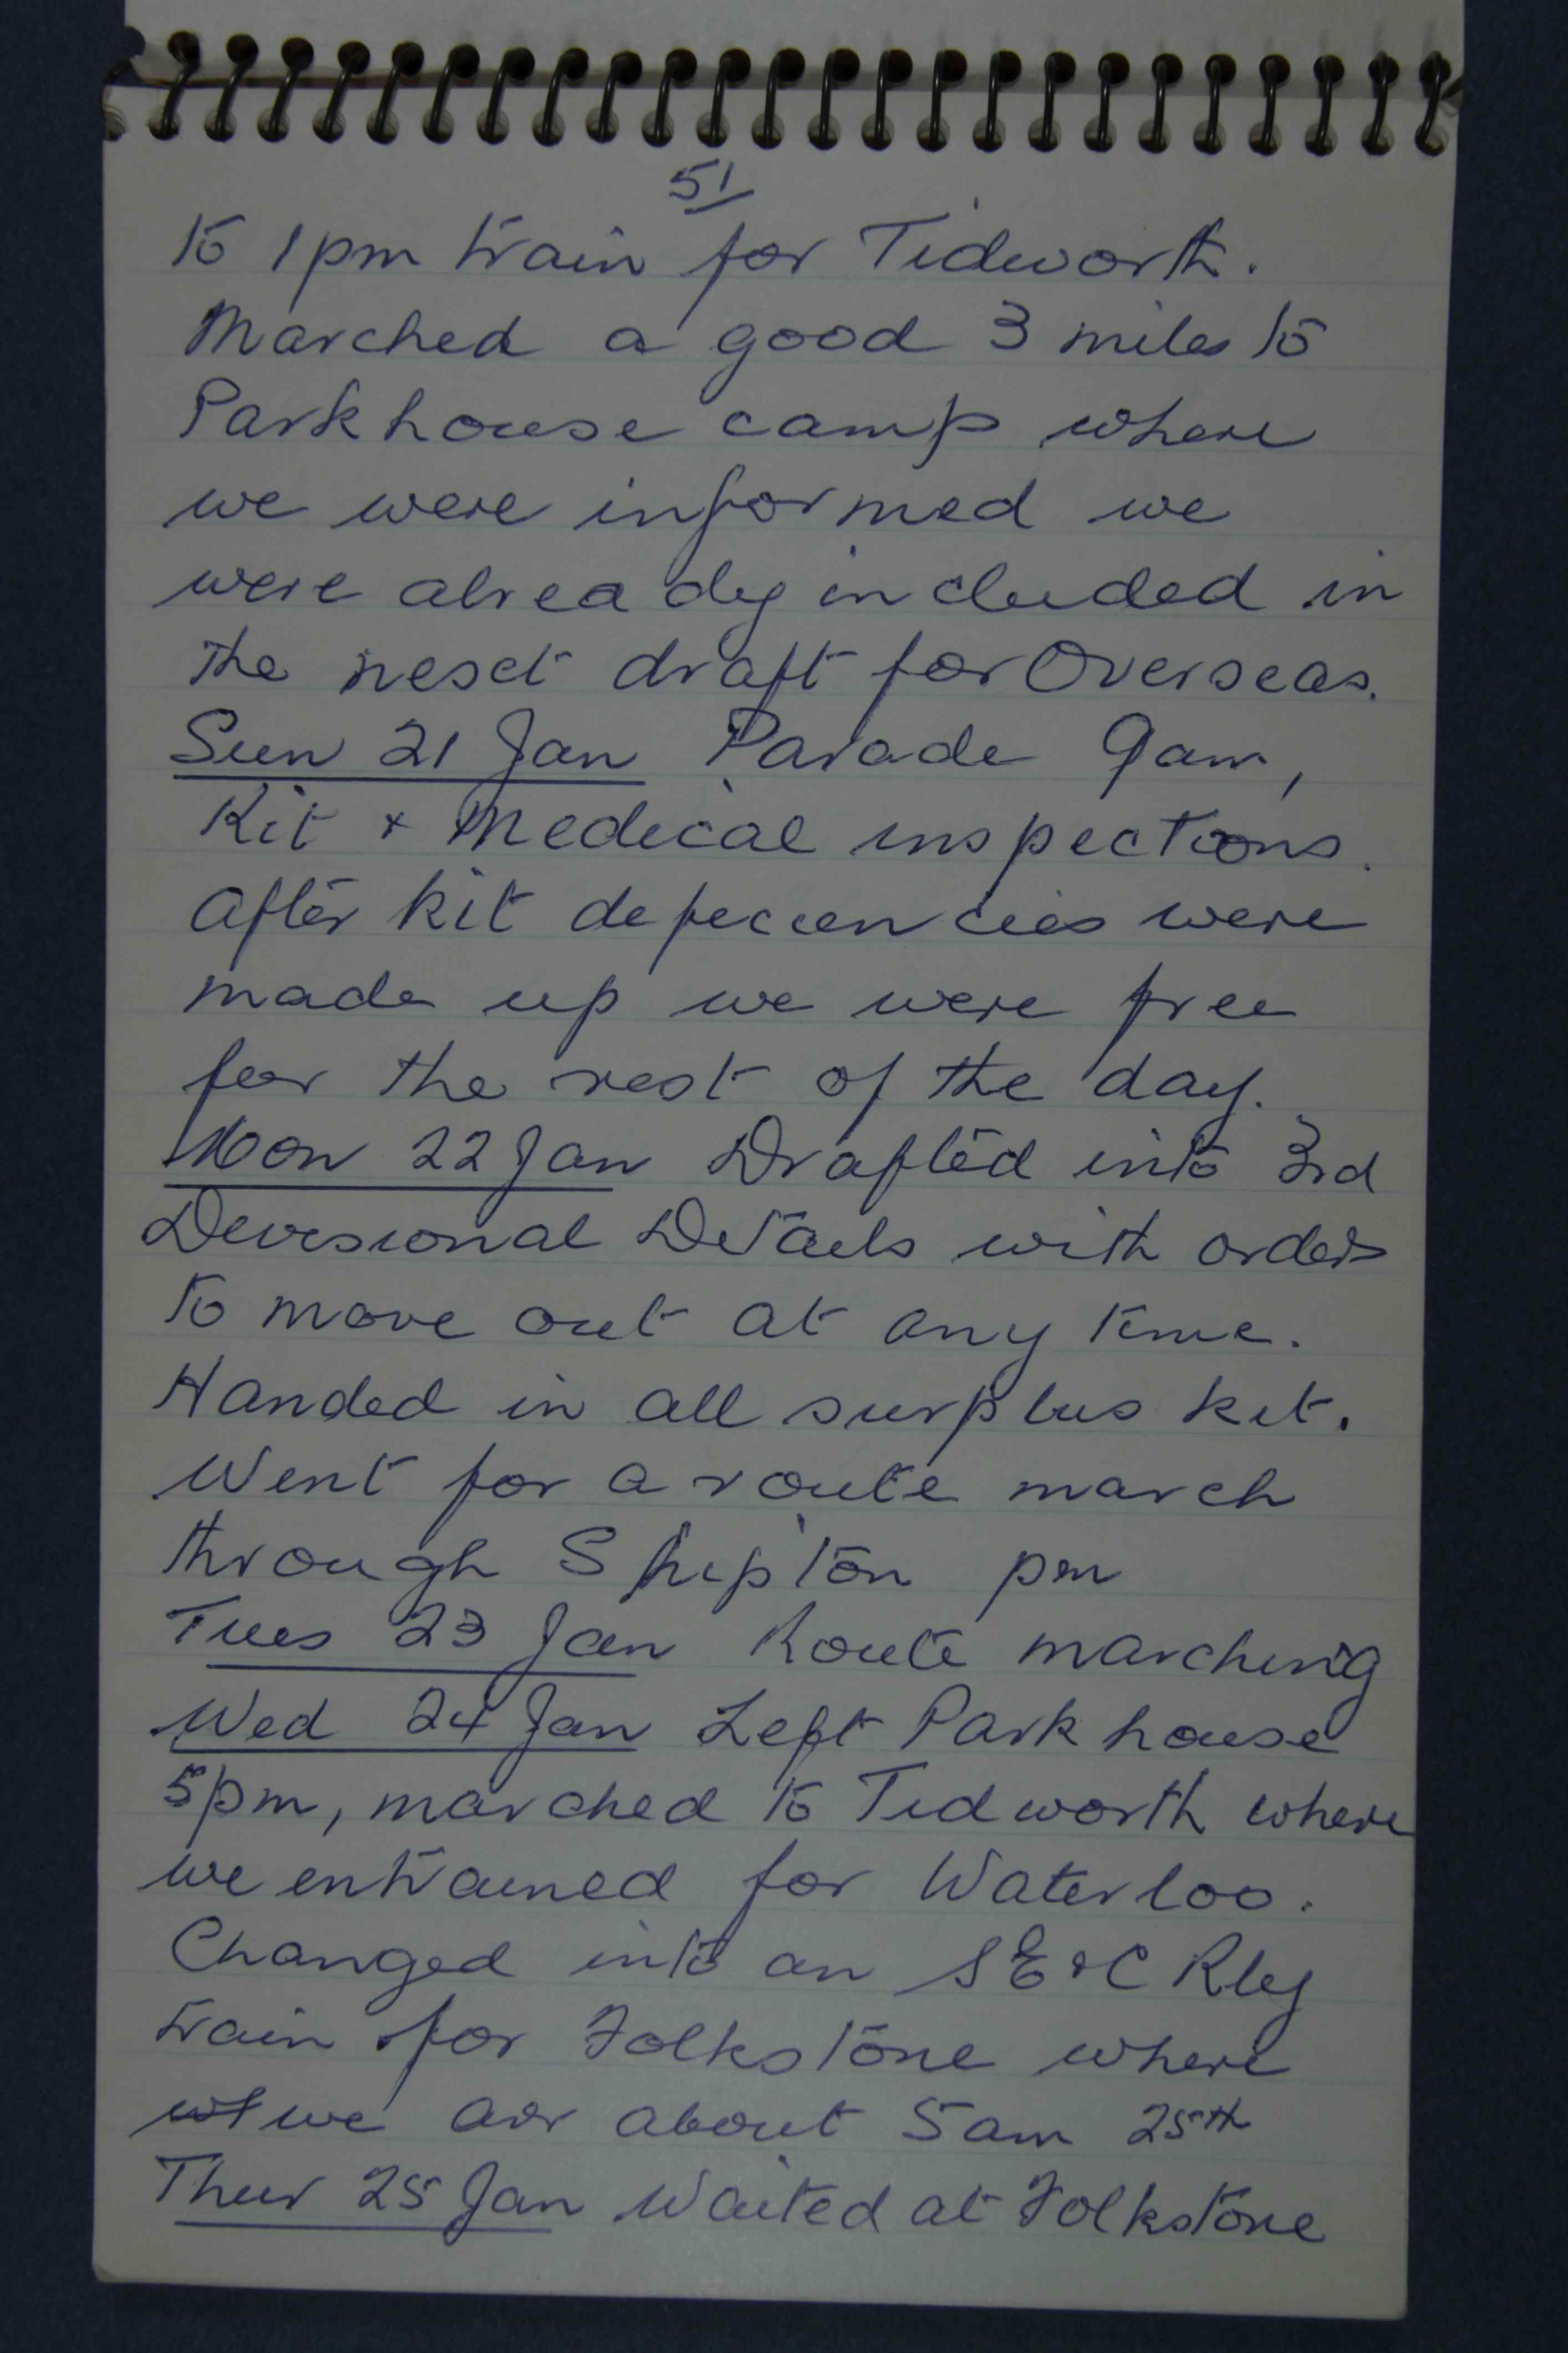 51
to 1pm train for Tidworth.
Marched a good 3 miles to
Parkhouse camp where
we were informed we
were already included in
the next draft for Overseas.
Sun 21 Jan Parade 9am,
Kit + Medical inspections.
After kit defeciencies were
made up we were free
for the rest of the day.
Mon 22 Jan Drafted into 3rd
Divisional Details with orders
to move out at any time.
Handed in all surplus kit.
Went for a route march
through Shipton pm
Tues 23 Jan Route marching
Wed 24 Jan Left Parkhouse
5pm, marched to Tidworth where
we entrained for Waterloo.
Changed into an SE&C Rly
train for Folkstone where
wt we arr about 5am 25th
Thur 25 Jan Waited at Folkstone